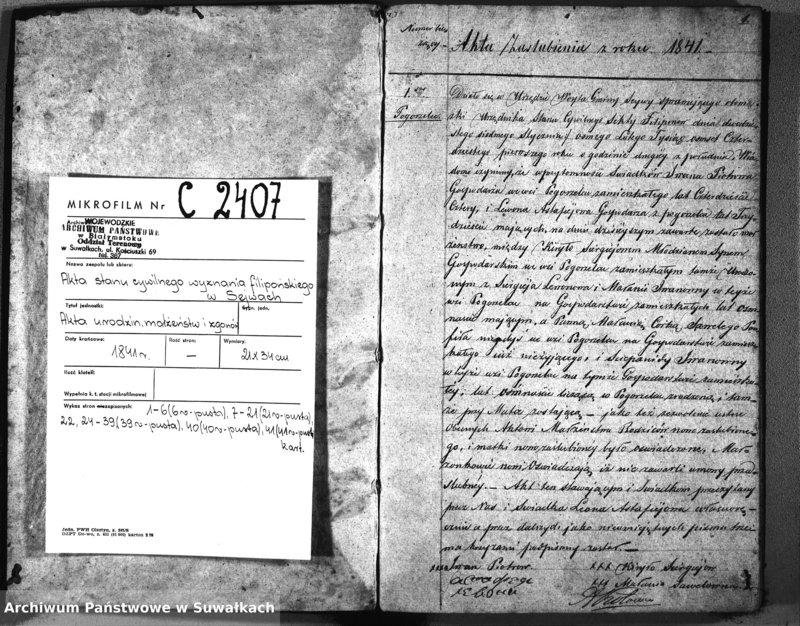 MIKROFILM Nr C 2407
Archiwum
WOJEWÓDZKIE
ARCHIWUM PAŃSTWOWE
w Białymstoku
Oddział Terenowy
w Suwałkach, ul. Kościuszki 69
tel. 367
Nazwa zespołu lub zbioru:
Akta stanu cywilnego wyznania filipońskiego
w Sejwach
Tytuł jednostki:
Sygn. jedn.
Akta urodzin, małżeństw i zgonów
Daty krańcowe:
Ilość stron:
Wymiary:
1841 r.
—
21 x 34 cm
Ilość klatek:
Wypełnia k. t. stacji mikrofilmowej
Wykaz stron niezapisanych:
1-6 (6v-pusta), 7-21 (21v-pusta),
22, 24-39 (39v-pusta), 40 (40v-pusta), 41 (41v-pusta
kart.
Numer bie
żący
Akta Zaślubienia z roku 1841.
1.
Pogorzelec
Działo się w Urzędzie Wóyta Gminy Seywy sprawującego obowiąz
ski Urzędnika Stanu Cywilnego Sekty Filiponow dnia dwudzie
stego siodmego Stycznia / osmego Lutego Tysiąc osmset Czter
dziestego pierwszego roku o godzinie drugiey z południa. Wia
domo czynimy, że w przytomności Świadków Iwana Piotrowa
Gospodarza we wsi Pogorzelcu zamieszkałego lat Czterdzieści
Cztery, i Lewona Astafiejowa Gospodarza z Pogorzelca lat
dzieści maiących, na dniu dzisieyszym zawarte zostało mał
żeństwo, między Kiryło Siergiejowem Młodzianem Synem
Gospodarskim we wsi Pogorzelcu zamieszkałym tamże Urodzo
nym z Siergieja Leonowa i Małanii Iwanowny w teyże
wsi Pogorzelcu na Gospodarstwie zamieszkałych lat
maiącym, a Panną Małanią, Córką Sawelego
niegdyś we wsi Pogorzelcu na Gospodarstwie zamiesz
kałego już nieżyjącego, i Stepanidy Iwanowny
w teyże wsi Pogorzelcu na tymże Gospodarstwie zamieszka
łey, lat ośmnaście liczącą w Pogorzelcu zrodzoną i tam
że przy Matce zostającą — jako też zezwolenie ustne
obecnych Aktowi Małżeństwa Rodziców nowozaślubione
go, i matki nowozaślubioney było oświadczone, Mał
żonkowie nowi Oświadczają iż nie zawarli umowy przed
ślubney. — Akt ten stawaiącym i Świadkom przeczytany
przez Nas i Świadka Leona Astafiejowa własnorę
cznie a przez dalszych jako nieumiejących pisma trze
ma krzyżami podpisany został. —
xxx Iwan Piotrow
xxx Kiryło Siergiejów
xxx Małania Sawelowna
Archiwum Państwowe w Suwałkach